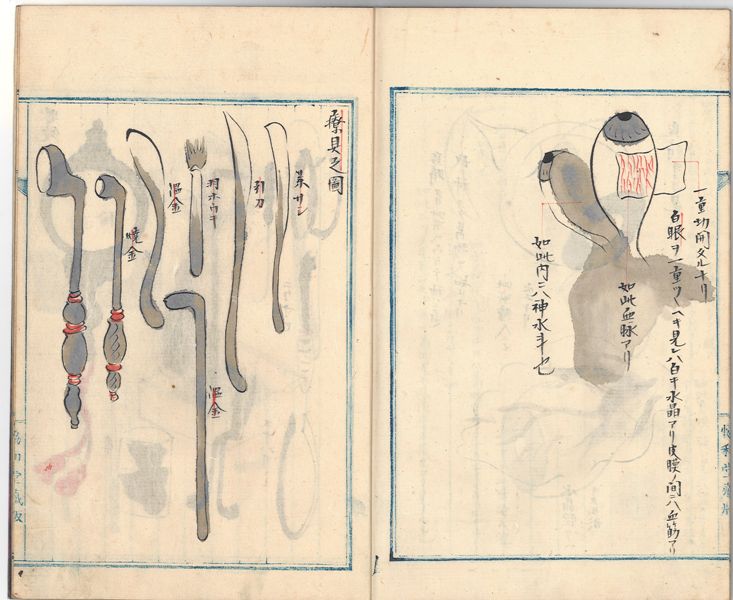 一重切開タルキリ
白眼ヲ一重ツヽヘキ見レハ白キ水晶アリ皮膜ノ間ニハ血筋アリ
如此血脉アリ
如此内ニハ神水斗也
療具之圖
引刀
羽ホウキ
温金
焼金
温金